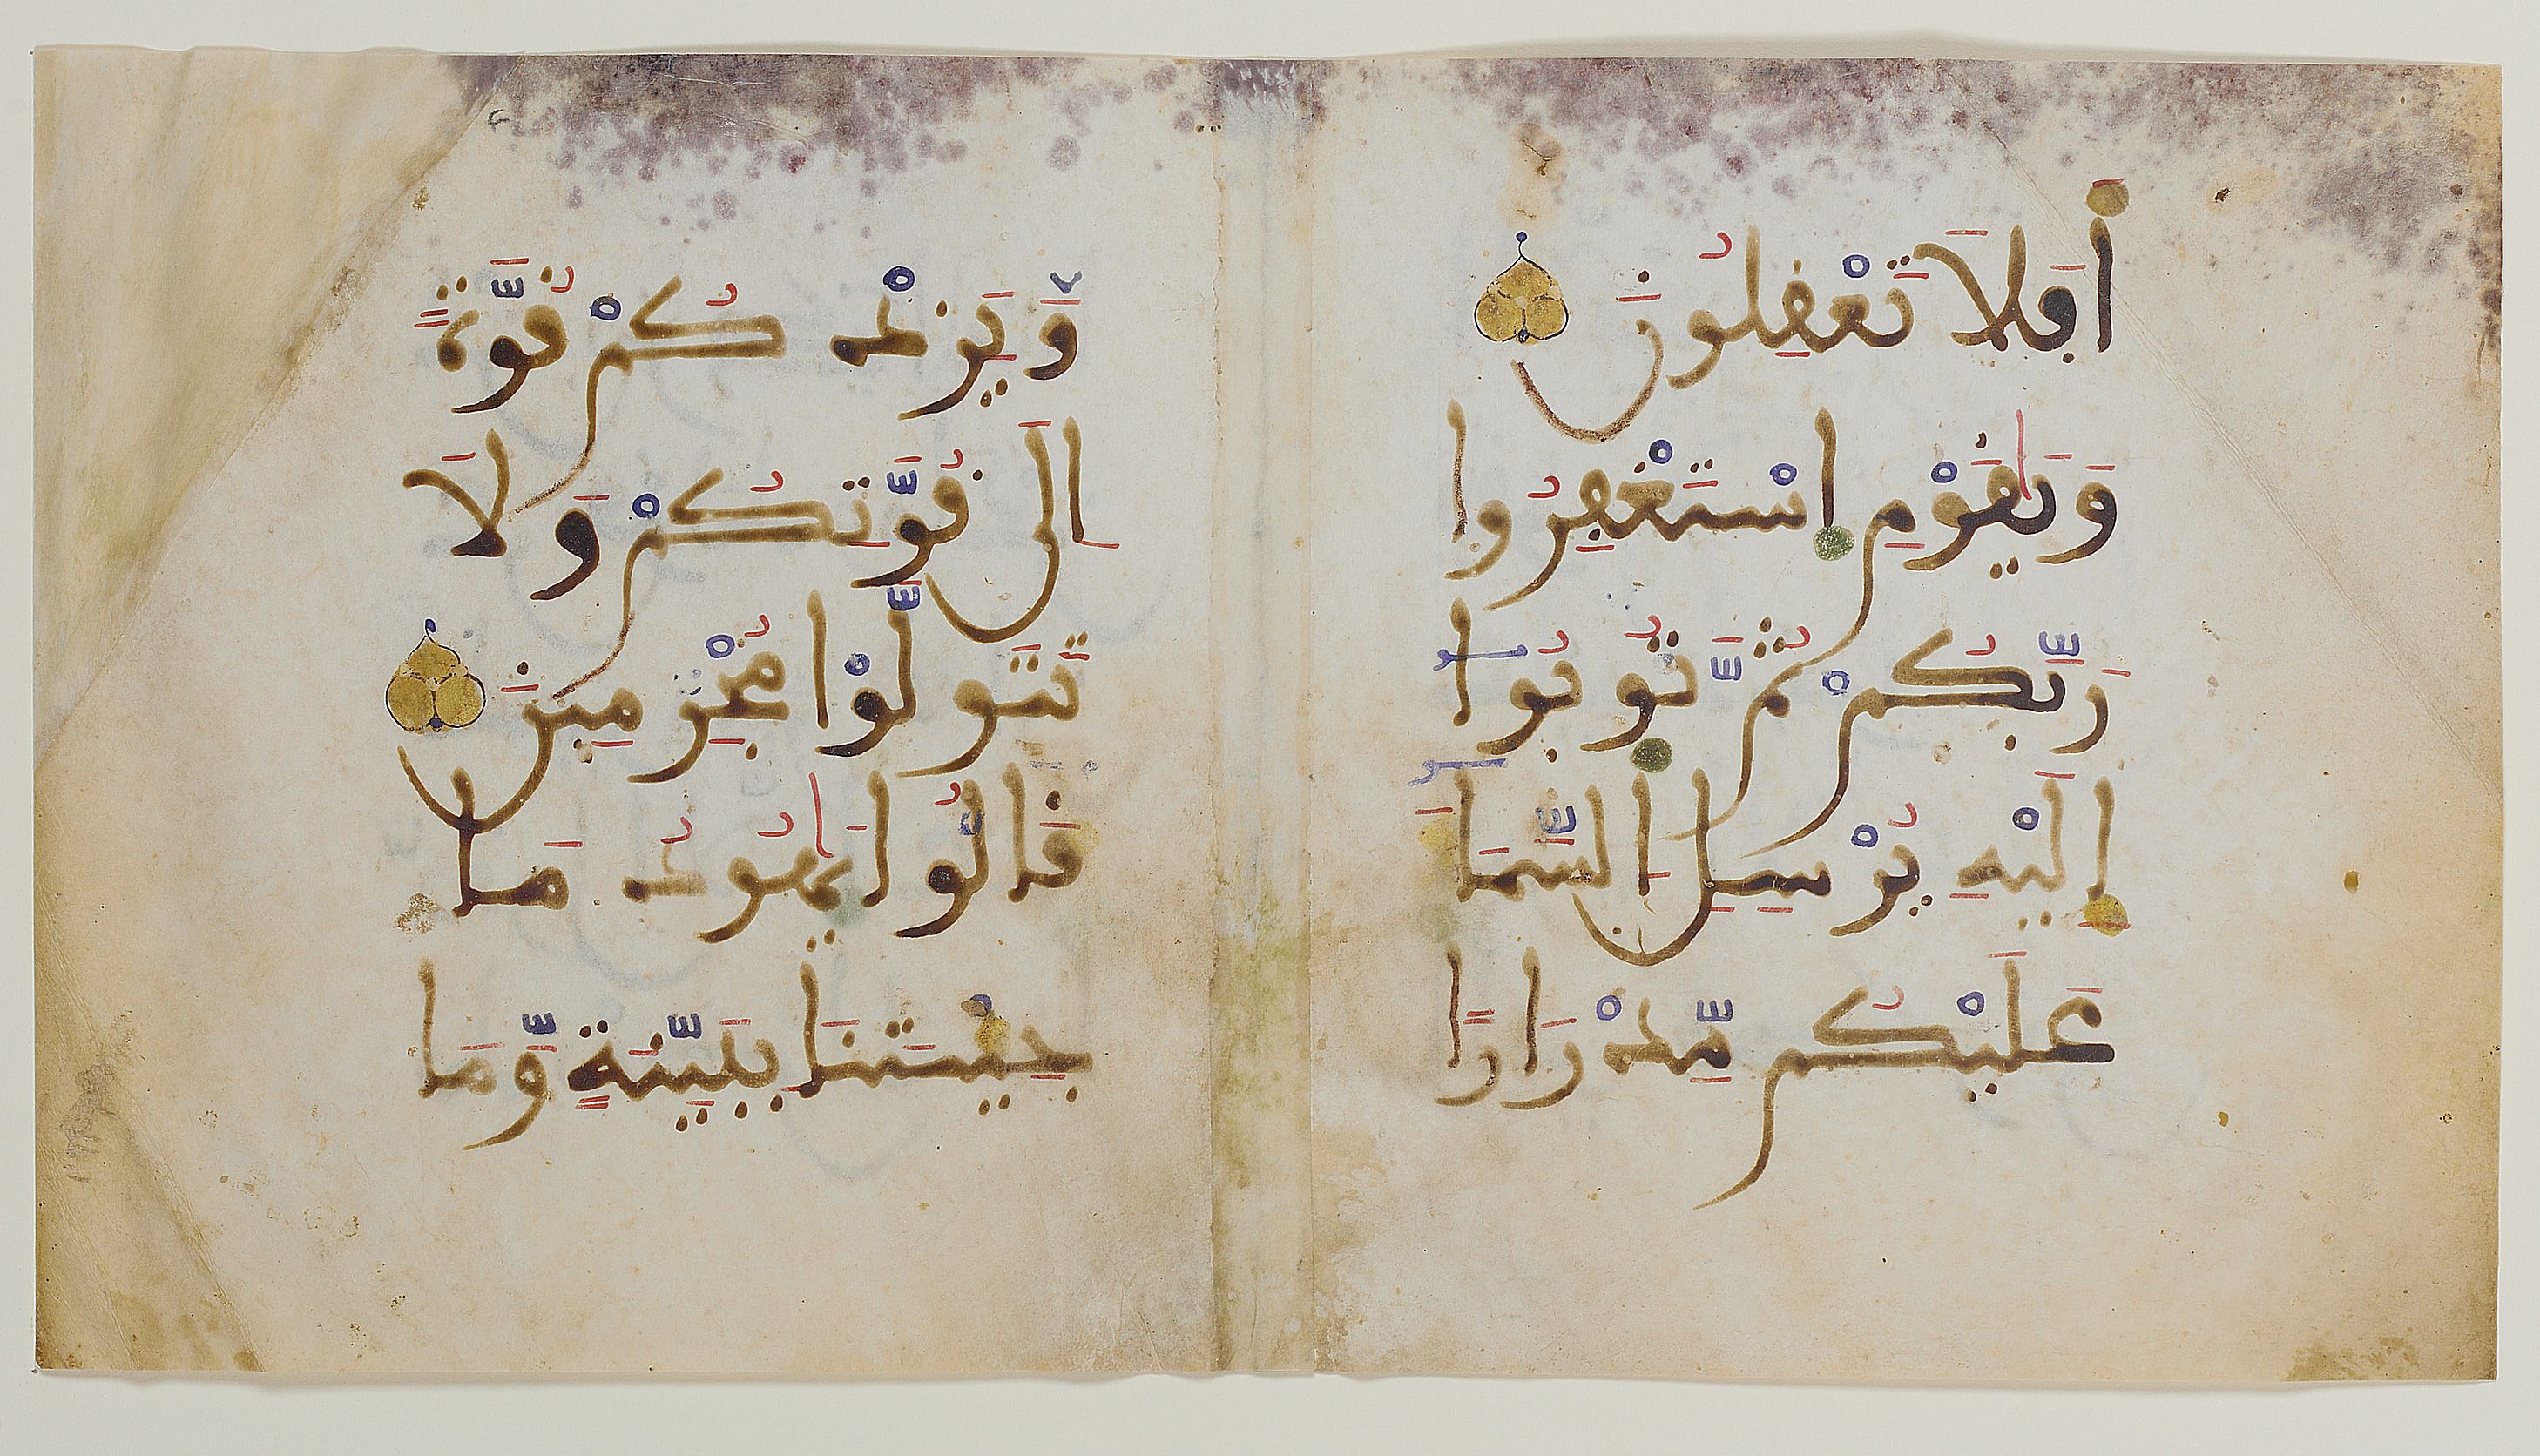 أَفَلَا تَعْقِلُونَ
وَيَٰقَوْمِ اسْتَغْفِرُوا
رَبَّكُمْ ثُمَّ تُوبُوا
إِلَيْهِ يُرْسِلِ السَّمَاءَ
عَلَيْكُم مِّدْرَارًا
وَيَزِدْكُمْ قُوَّةً
اِلَى قُوَّتِكُمْ وَلَا
تَتَوَلَّوْا مُجْرِمِينَ
قَالُوا يَٰهُودُ مَا
جِئْتَنَا بِبَيِّنَةٍ وَّمَا